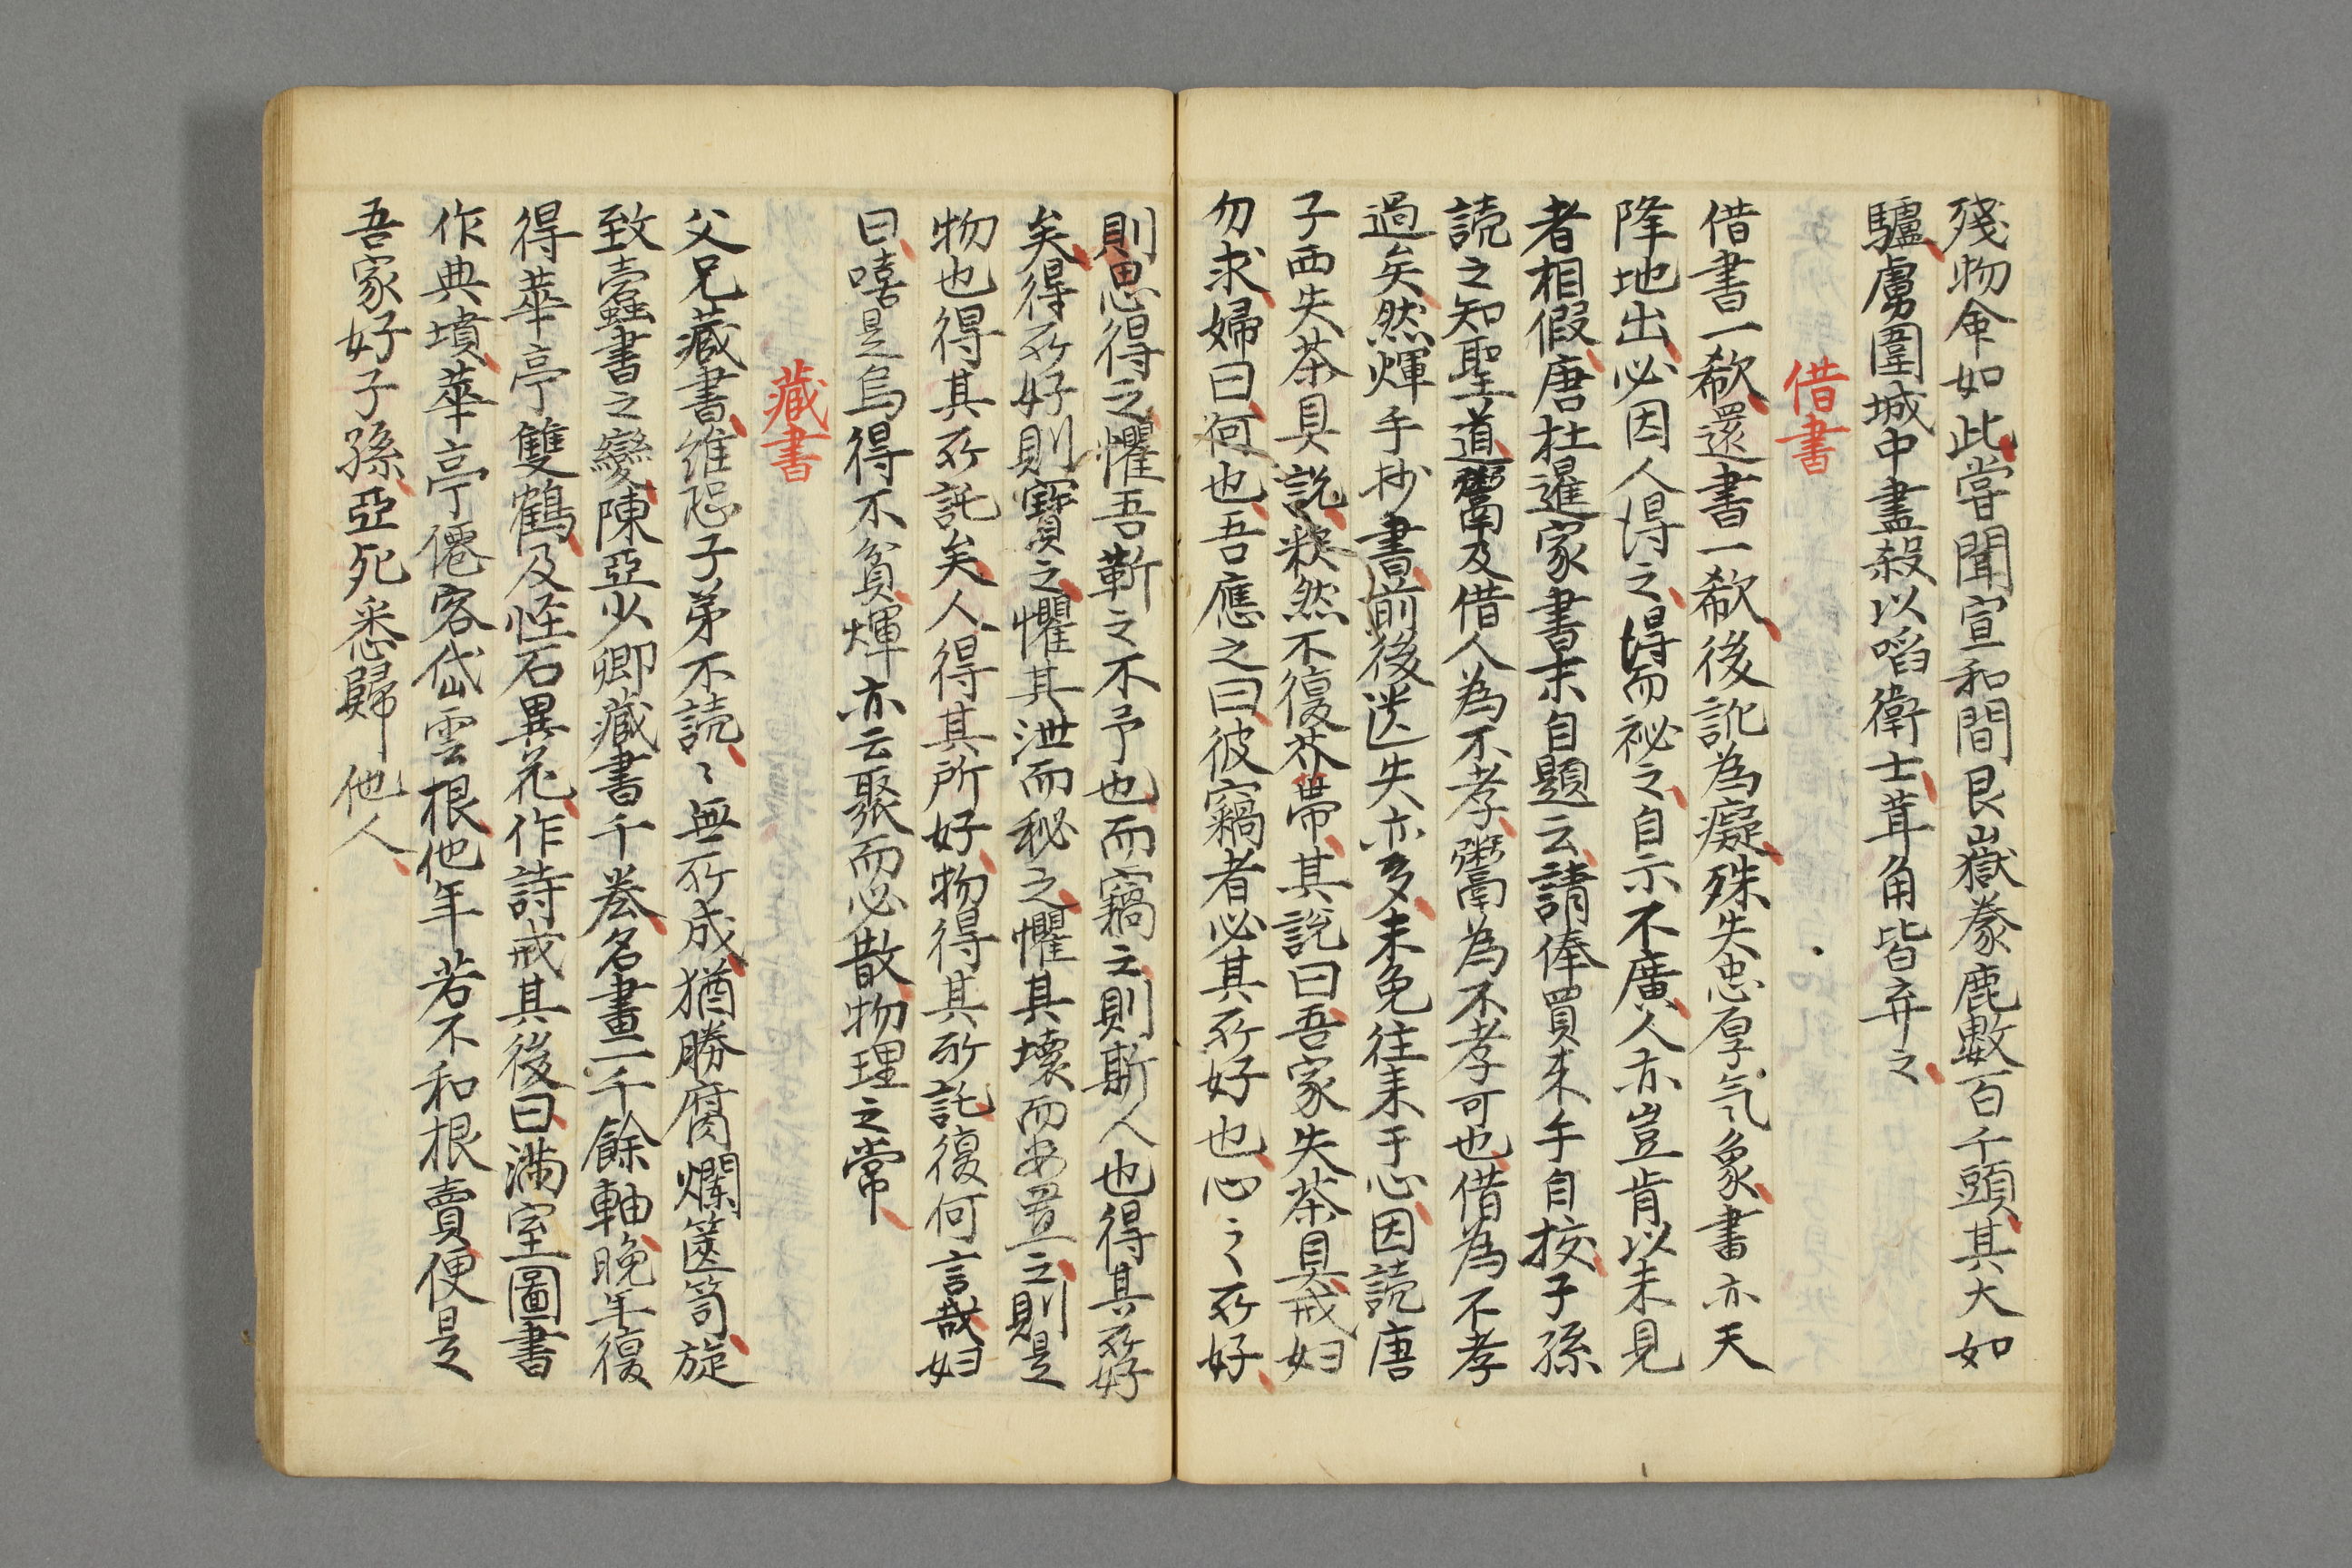 殘物命如此嘗聞宣和間艮嶽豢鹿數百千頭其大如
驢虜圍城中盡殺以啗衛士茸角皆弃之
借書
借書一瓻還書一瓻後訛為癡殊失忠厚气象書亦天
降地出必因人得之得而祕之自示不廣人亦豈肯以未見
者相假唐杜暹家書末自題云請俸買来手自挍子孫
読之知聖道鬻及借人為不孝鬻為不孝可也借為不孝
過矣然煇手抄書前後送失亦多未免往来于心因読唐
子西失茶具說釈然不復芥蔕其説曰吾家失茶具戒妇
勿求婦曰何也吾應之曰彼竊者必其所好也心之所好
則思得之懼吾靳之不予也而竊之則斯人也得其所好
矣得所好則寶之懼其泄而秘之懼其壊而安置之則是
物也得其所託矣人得其所好物得其所託復何言哉妇
曰嘻是烏得不貧煇亦云聚而必散物理之常
藏書
父兄藏書維恐子弟不読〻無所成猶勝腐爛篋笥旋
致蠹書之變陳亞少卿藏書千巻名畫一千餘軸晩年復
得華亭雙鶴及怪石異花作詩戒其後曰満室圖書
作典墳華亭僊客岱雲根他年若不和根賣便是
吾家好子孫亞死悉歸他人